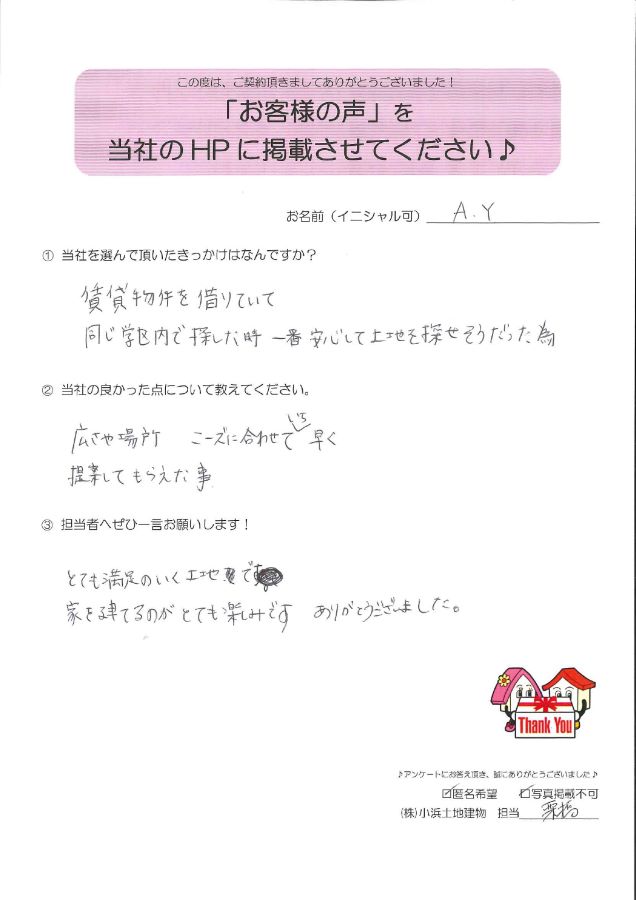 この度は、ご契約頂きましてありがとうございました！
「お客様の声」を
当社のHPに掲載させてください♪
お名前（イニシャル可） A.Y
① 当社を選んで頂いたきっかけはなんですか？
賃貸物件を借りていて
同じ学区内で探した時 一番安心して土地を探せそうだった為
② 当社の良かった点について教えてください。
広さや場所 ニーズに合わせていち早く
提案してもらえた事
③ 担当者へぜひ一言お願いします！
とても満足のいく土地です
家を建てるのがとても楽しみです ありがとうございました。
Thank You
♪アンケートにお答え頂き、誠にありがとうございました♪
☑匿名希望 ☑写真掲載不可
(株)小浜土地建物 担当 栗橋